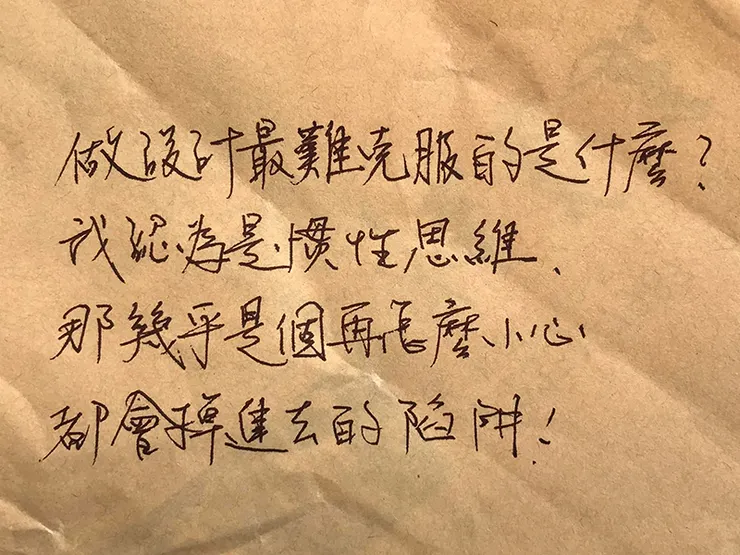 做設計最難克服的是什麼?
我認為是慣性思維、
那幾乎是個再怎麼小心
都會掉進去的陷阱!